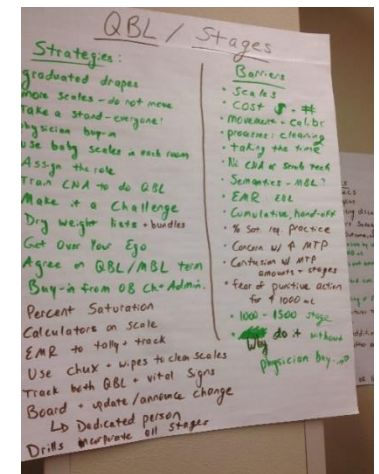 QBL / Stages
Strategies:
graduated drapes
more scales - do not move
Take a stand - everyone!
physician buy-in
use baby scales in each room
Assign the role
Train CNA to do QBL
Make it a Challenge
Dry weight lists + bundles
Get Over Your Ego
Agree on QBL/MBL term
Buy-in from OB Ch + Admin.
Percent Saturation
Calculators on scale
EMR to tally + track
Use chux + wipes to clean scales
Track both QBL + Vital Signs
Board + update/announce change
↳ Dedicated person
Drills incorporate all stages
Barriers
• Scales
• Cost $ - #
• movement + calibr
• process: cleaning
• taking the time
• No CNA or Scrub tech
• Semantics - MBL?
• EMR EBL
• Cumulative, hand-off
• % Sat. req. practice
• Concern w/ ↑ MTP
• Confusion w/ MTP
amounts + stages
• fear of punitive action
for ↑ 1000 mL
• 1000 - 1500 stage
• Why do it without
physician buy-in